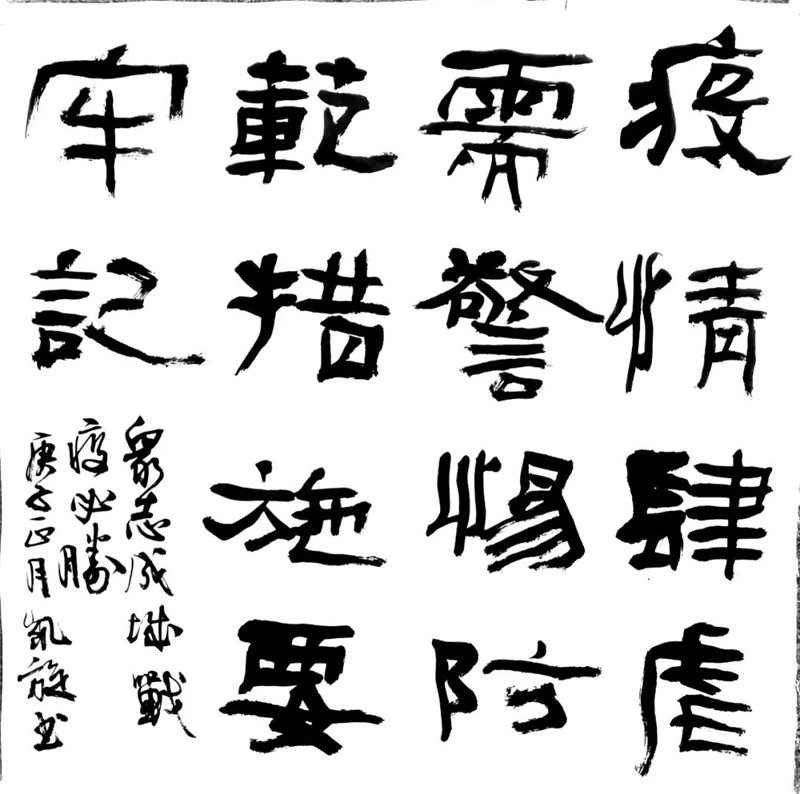 疫情肆虐
需警惕防
範措施要
牢記
眾志成城戰
疫必勝
庚子正月凱旋书